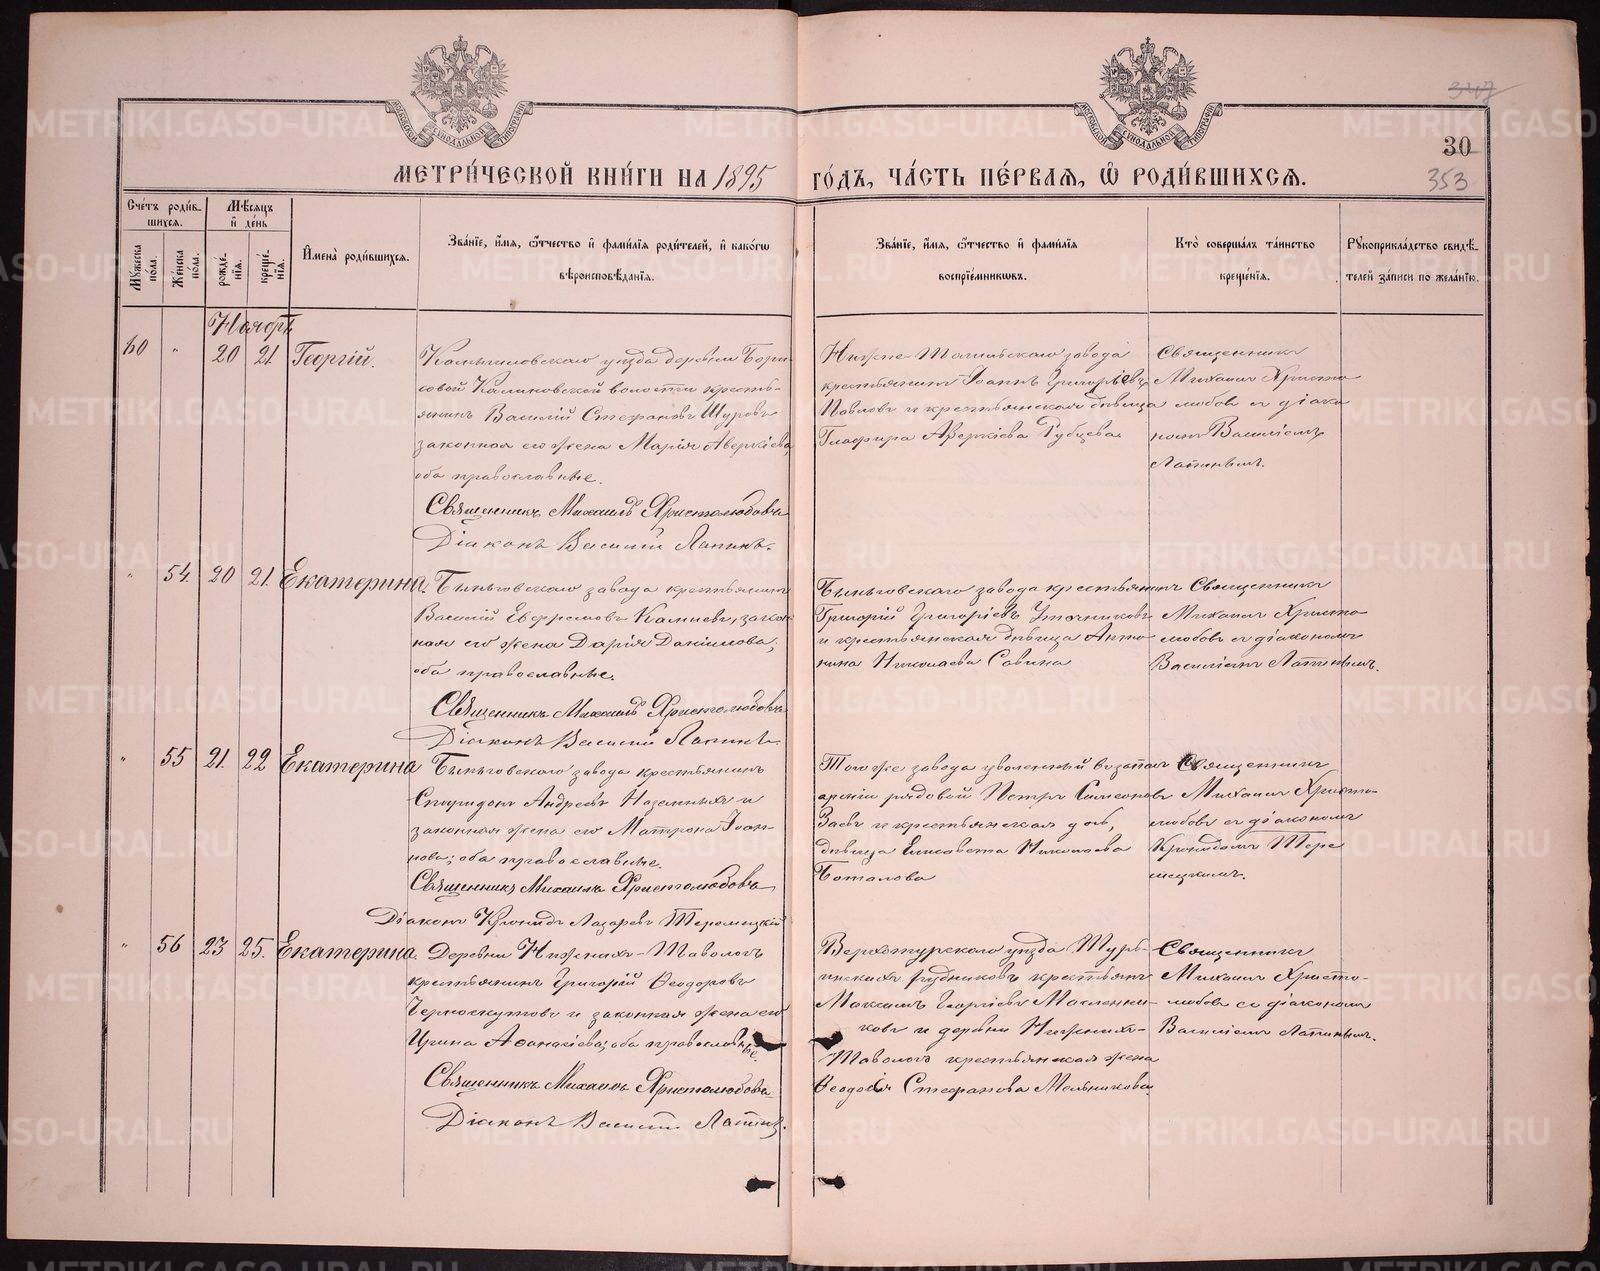 347
30
353
МЕТРИ́ЧЕСКОЙ КНИ́ГИ НА 1895 ГО́ДЪ, ЧА́СТЬ ПЕ́РВАЯ, Ѡ РОДИ́ВШИХСЯ.
Сче́тъ роди́в-
шихся.
Мꙋ́жеска по́ла.
Же́нска по́ла.
Мѣ́сяцъ и́ де́нь
рожде́-нїя.
креще́-нїя.
И҆мена̀ роди́вшихся.
Зва́нїе, и҆́мя, ѻ҆́тчество и҆ фами́лїя роди́телей, и҆ како́гѡ
вѣроисповѣ́данїя.
Зва́нїе, и҆́мя, ѻ҆́тчество и҆ фами́лїя
воспрїе́мникѡвъ.
Кто̀ соверша́лъ та́инство
креще́нїя.
Рꙋкоприкла́дство свидѣ́-
телей за́писи по жела́нїю.
Ноябрь
60 " 20 21 Георгій.
Камышловскаго уѣзда деревни Бори-
совой Калиновской волости крестья-
янинъ Василій Стефановъ Шуровъ
законная его жена Марія Аверкіева,
оба православные.
Священникъ Михаилъ Христолюбовъ
Діаконъ Василій Лапинъ.
Нижне-Тагильскаго завода
крестьянинъ Іоаннъ Григорьевъ
Павловъ и крестьянская дѣвица
Глафира Аверкіева Рубцева
Священникъ
Михаилъ Христо-
любовъ съ діако
номъ Василіемъ
Лапинымъ.
" 54. 20 21. Екатерина.
Быньговскаго завода крестьянинъ
Василій Ефремовъ Калиевъ, закон
ная его жена Дарія Даніилова,
оба православные.
Священникъ Михаилъ Христолюбовъ
Діаконъ Василій Лапинъ.
Быньговскаго завода крестьянинъ
Григорій Григоріевъ Уточниковъ
и крестьянская дѣвица Анто-
нина Николаева Савина
Священникъ
Михаилъ Христо-
любовъ съ діакономъ
Василіемъ Лапинымъ.
" 55 21. 22 Екатерина
Быньговскаго завода крестьянинъ
Спиридонъ Андреевъ Назенныхъ и
законная жена его Матрона Іоан-
нова; оба православные.
Священникъ Михаилъ Христолюбовъ
Діаконъ Кронидъ Лазаревъ Теремецкій
Того же завода уволенный въ запасъ
арміи рядовой Петръ Симеоновъ
Заевъ и крестьянская дочь,
дѣвица Елисавета Николаева
Боталова
Священникъ
Михаилъ Христо-
любовъ съ діакономъ
Кронидомъ Тере
мецкимъ.
" 56 23 25. Екатерина.
Деревни Нижнихъ-Тавологъ
крестьянинъ Григорій Ѳеодоровъ
Черноскутовъ и законная жена его
Ирина Аѳанасіева; оба православные
Священникъ Михаилъ Христолюбовъ
Діаконъ Василій Лапинъ.
Верхотурскаго уѣзда Турь-
инскихъ рудниковъ крестьян
Максимъ Георгіевъ Масленни-
ковъ и деревни Нижнихъ-
Тавологъ крестьянская жена
Ѳеодосія Стефанова Мельникова
Священникъ
Михаилъ Христо-
любовъ съ діакономъ
Василіемъ Лапинымъ.